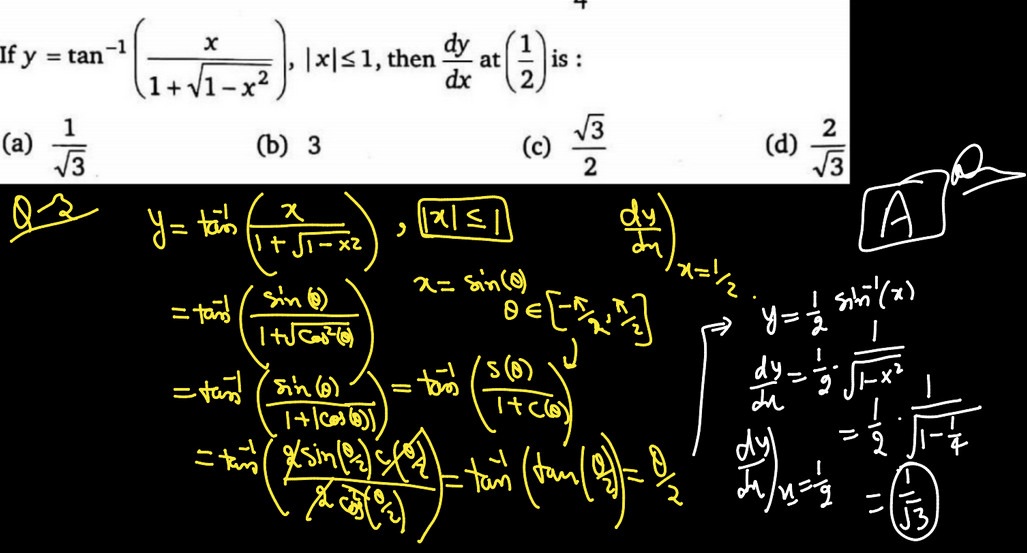 4
If y = tan⁻¹ ( x / (1 + √(1 − x²)) ), |x| ≤ 1, then dy/dx at (1/2) is :
(a) 1/√3 (b) 3 (c) √3/2 (d) 2/√3
Q-2
y = tan⁻¹ ( x / (1 + √(1 − x2)) ), |x| ≤ 1
dy/dx ) x = 1/2 .
A
= tan⁻¹ ( sin(θ) / (1 + √(cos²(θ))) )
x = sin(θ)
θ ∈ [−π/2, π/2]
= tan⁻¹ ( sin(θ) / (1 + |cos(θ)|) ) = tan⁻¹ ( s(θ) / (1 + c(θ)) )
= tan⁻¹ ( 2 sin(θ/2) c(θ/2) / 2 cos²(θ/2) ) = tan⁻¹ ( tan(θ/2) ) = θ/2
⇒ y = 1/2 sin⁻¹(x)
dy/dx = 1/2 · 1/√(1 − x²)
= 1/2 · 1/√(1 − 1/4)
dy/dx ) x = 1/2 = 1/√3